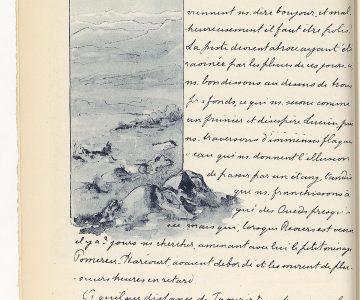 viennent ns. dire bonjour, et mal-
heureusement il faut être polis.
La piste devient atroce ayant été
ravinée par les pluies de ces jours-ci
ns. bondissons au dessus de trous
profonds, ce qui ns. secoue comme
un prunier et désespère Lucien puis
ns. traversons d'immenses flaques
d'eau qui ns. donnent l'illusion
de passer par un étang, tandis
que ns. franchissons à
gué des Oueds presqu'à
sec mais qui, lorsque Revers est venu
il y a 2 jours ns chercher, amenant avec lui le petit ménage
Pomereu, Harcourt avaient débordé et les mirent de plu-
sieurs heures en retard.
A quelque distance de